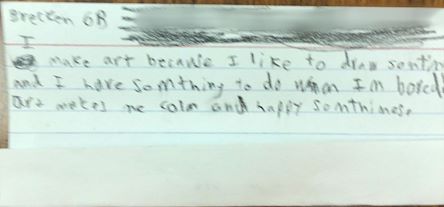 Brecken 6B
I
make art because I like to draw somtin
and I have somthing to do when I'm bored
Art makes me calm and happy somthimes.